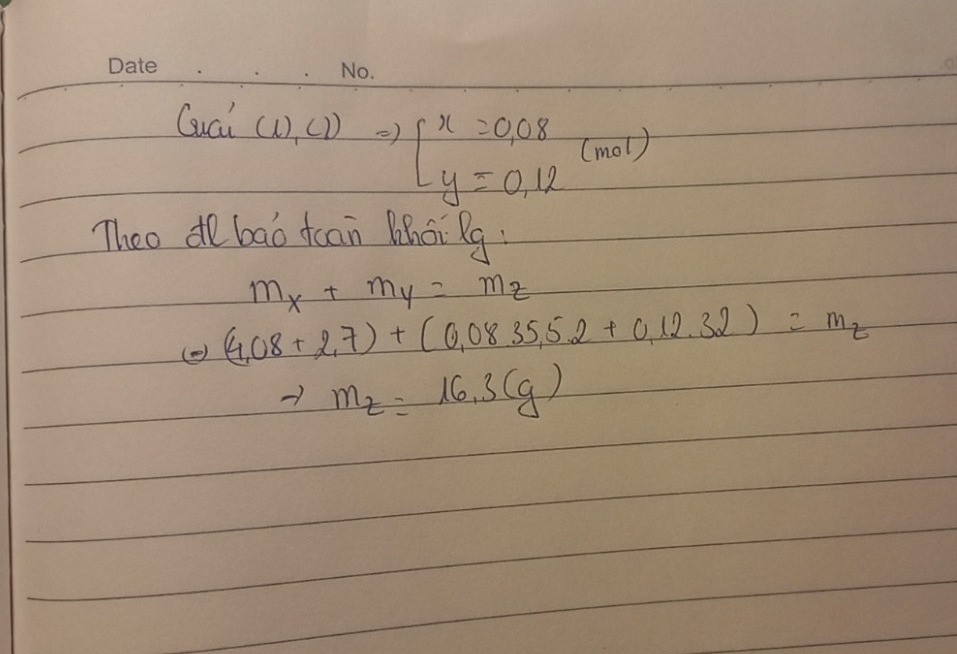 Date . . . No.
Giải (1), (2) => { x = 0,08
y = 0,12 (mol)
Theo đl bảo toàn khối lg:
mX + mY = mZ
(=) (4,08 + 2,7) + (0,08.35,5.2 + 0,12.32) = mZ
→ mZ = 16,3 (g)